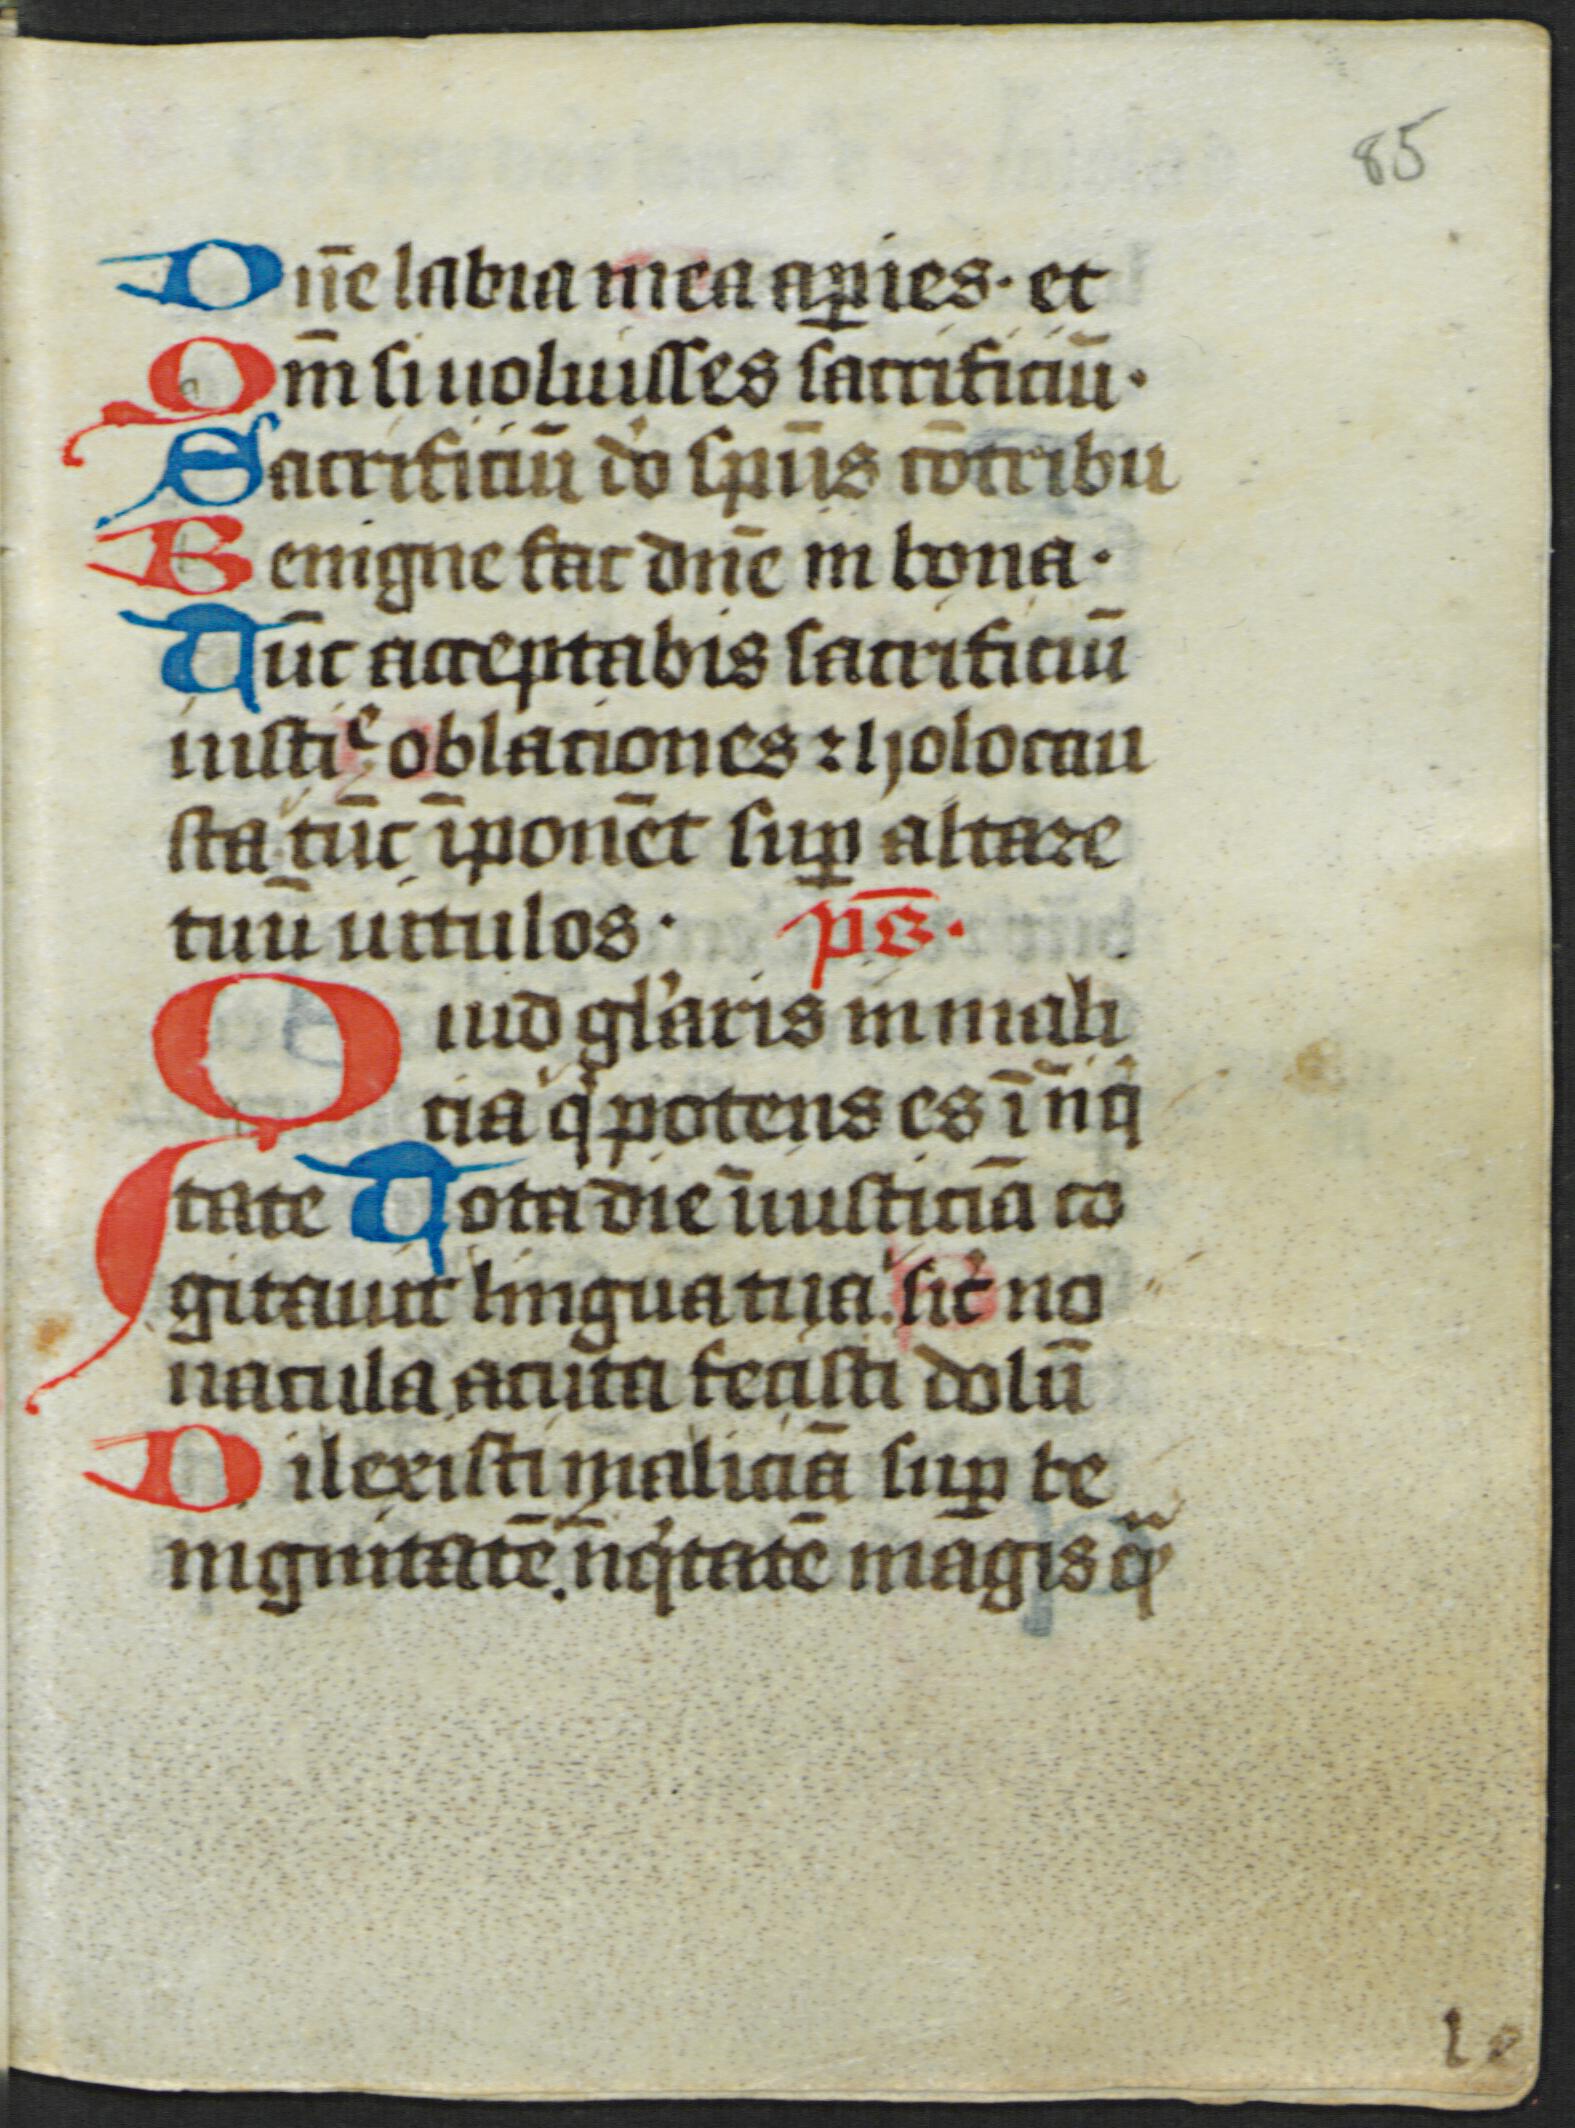 85
Dn̄e labia mea aꝑies· et
Qm̄ si uoluisses sacrificiū·
Sacrificiū do sp̄us cōtribu
Benigne fac dn̄e in bona·
Tūc acceptabis sacrificiū
iusticͤ oblationes ⁊ holocau
sta tūc īponēt suꝑ altare
tuū uitulos· p̄s·
Quid glꝛ̄aris in mali
cia q̇ potens es ī īiq̇
tate Tota die īiusticiā co
gitauit lingua tua. sic̄ no
uacula acuta fecisti dolū
Dilexisti maliciā suꝑ be
nignitatē. īiq̇tatē magis qᷓ